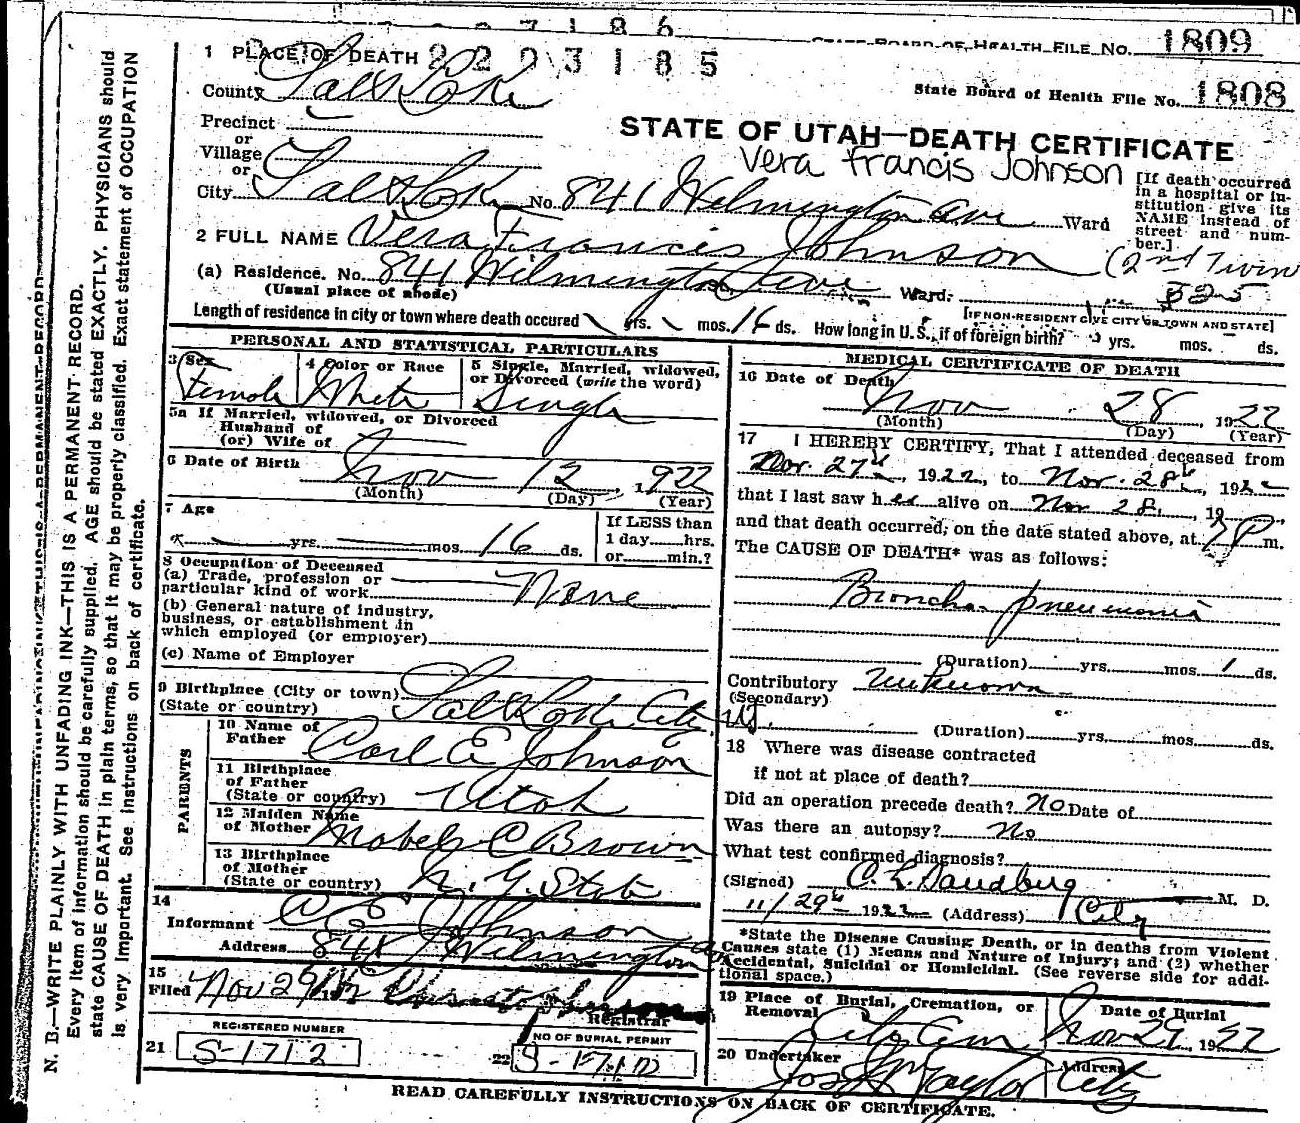 STATE BOARD OF HEALTH FILE NO. 1809
1 PLACE OF DEATH 2 2 2 3 1 8 5
State Board of Health File No. 1808
County Salt Lake
Precinct
or
Village
or
City Salt Lake No. 841 Wilmington Ave Ward
STATE OF UTAH—DEATH CERTIFICATE
Vera Francis Johnson
[If death occurred
in a hospital or in-
stitution give its
NAME instead of
street and num-
ber.]
2 FULL NAME Vera Francis Johnson (2nd Twin
(a) Residence. No. 841 Wilmington Ave Ward.
(Usual place of abode)
[IF NON-RESIDENT GIVE CITY OR TOWN AND STATE]
Length of residence in city or town where death occured yrs. mos. 16 ds. How long in U.S., if of foreign birth? yrs. mos. ds.
PERSONAL AND STATISTICAL PARTICULARS
3 Sex
Female
4 Color or Race
White
5 Single, Married, widowed,
or Divorced (write the word)
Single
5a If Married, widowed, or Divorced
Husband of
(or) Wife of
6 Date of Birth
Nov 12, 1922
(Month) (Day) (Year)
7 Age
yrs. mos. 16 ds.
If LESS than
1 day hrs.
or min.?
8 Occupation of Deceased
(a) Trade, profession or
particular kind of work None
(b) General nature of industry,
business, or establishment in
which employed (or employer)
(c) Name of Employer
9 Birthplace (City or town)
(State or country) Salt Lake City Ut.
PARENTS
10 Name of
Father Carl E Johnson
11 Birthplace
of Father
(State or country) Utah
12 Maiden Name
of Mother Mabel C Brown
13 Birthplace
of Mother
(State or country) State
14
Informant C E Johnson
Address 841 Wilmington Av
15
Filed Nov 29
Registrar
REGISTERED NUMBER
21 S-1712
NO OF BURIAL PERMIT
22
MEDICAL CERTIFICATE OF DEATH
16 Date of Death
Nov 28, 1922
(Month) (Day) (Year)
17 I HEREBY CERTIFY, That I attended deceased from
Nov. 27th, 1922, to Nov. 28th, 1922
that I last saw her alive on Nov 28, 19
and that death occurred, on the date stated above, at 7 P m.
The CAUSE OF DEATH* was as follows:
Broncho-pneumonia
(Duration) yrs. mos. 1 ds.
Contributory Unknown
(Secondary)
(Duration) yrs. mos. ds.
18 Where was disease contracted
if not at place of death?
Did an operation precede death? No Date of
Was there an autopsy? No
What test confirmed diagnosis?
(Signed) C. L. Sandberg M. D.
11/29th 1922 (Address) City
*State the Disease Causing Death, or in deaths from Violent
Causes state (1) Means and Nature of Injury; and (2) whether
Accidental, Suicidal or Homicidal. (See reverse side for addi-
tional space.)
19 Place of Burial, Cremation, or
Removal City Cem
Date of Burial
Nov 29, 1922
20 Undertaker
Jos Wm Taylor
Address
City
READ CAREFULLY INSTRUCTIONS ON BACK OF CERTIFICATE.
N. B.—WRITE PLAINLY WITH UNFADING INK—THIS IS A PERMANENT RECORD.
Every item of information should be carefully supplied. AGE should be stated EXACTLY. PHYSICIANS should
state CAUSE OF DEATH in plain terms, so that it may be properly classified. Exact statement of OCCUPATION
is very important. See instructions on back of certificate.